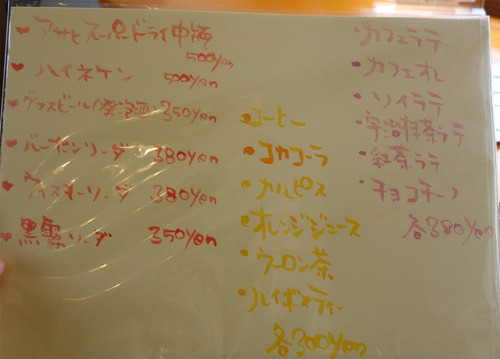 アサヒスーパードライ中瓶
500yen
ハイネケン
500yen
グラスビール(発泡酒) 350yen
バーボンソーダ 380yen
ウイスキーソーダ 380yen
黒霧ソーダ 350yen
・コーヒー
・コカコーラ
・カルピス
・オレンジジュース
・ウーロン茶
・ルイボスティー
各300yen
・カフェラテ
・カフェオレ
・ソイラテ
・宇治抹茶ラテ
・紅茶ラテ
・チョコチーノ
各380yen